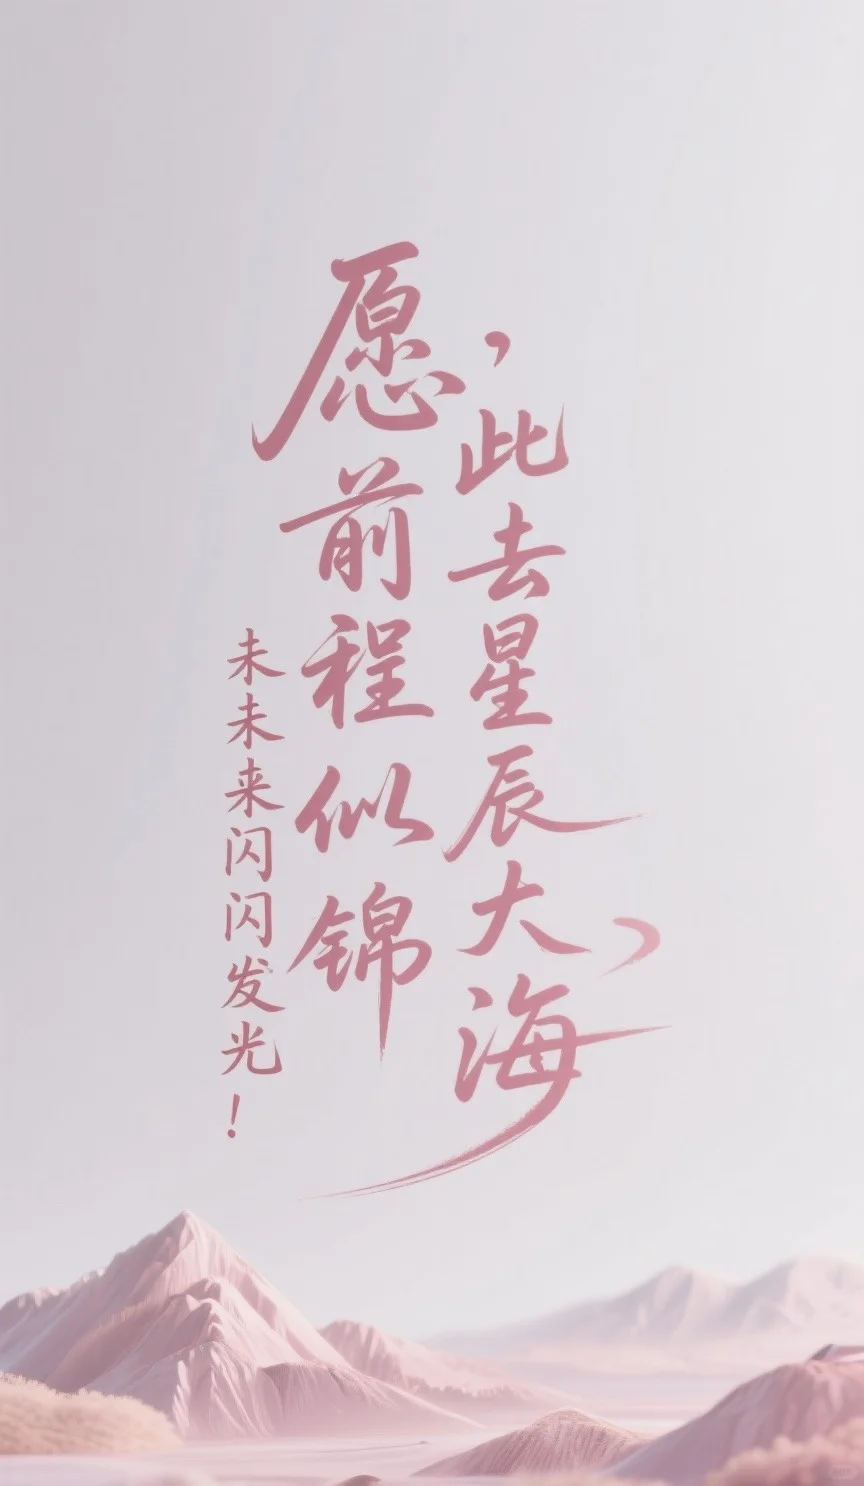 ，此去星辰大海，
愿前程似锦
未未来闪闪发光！